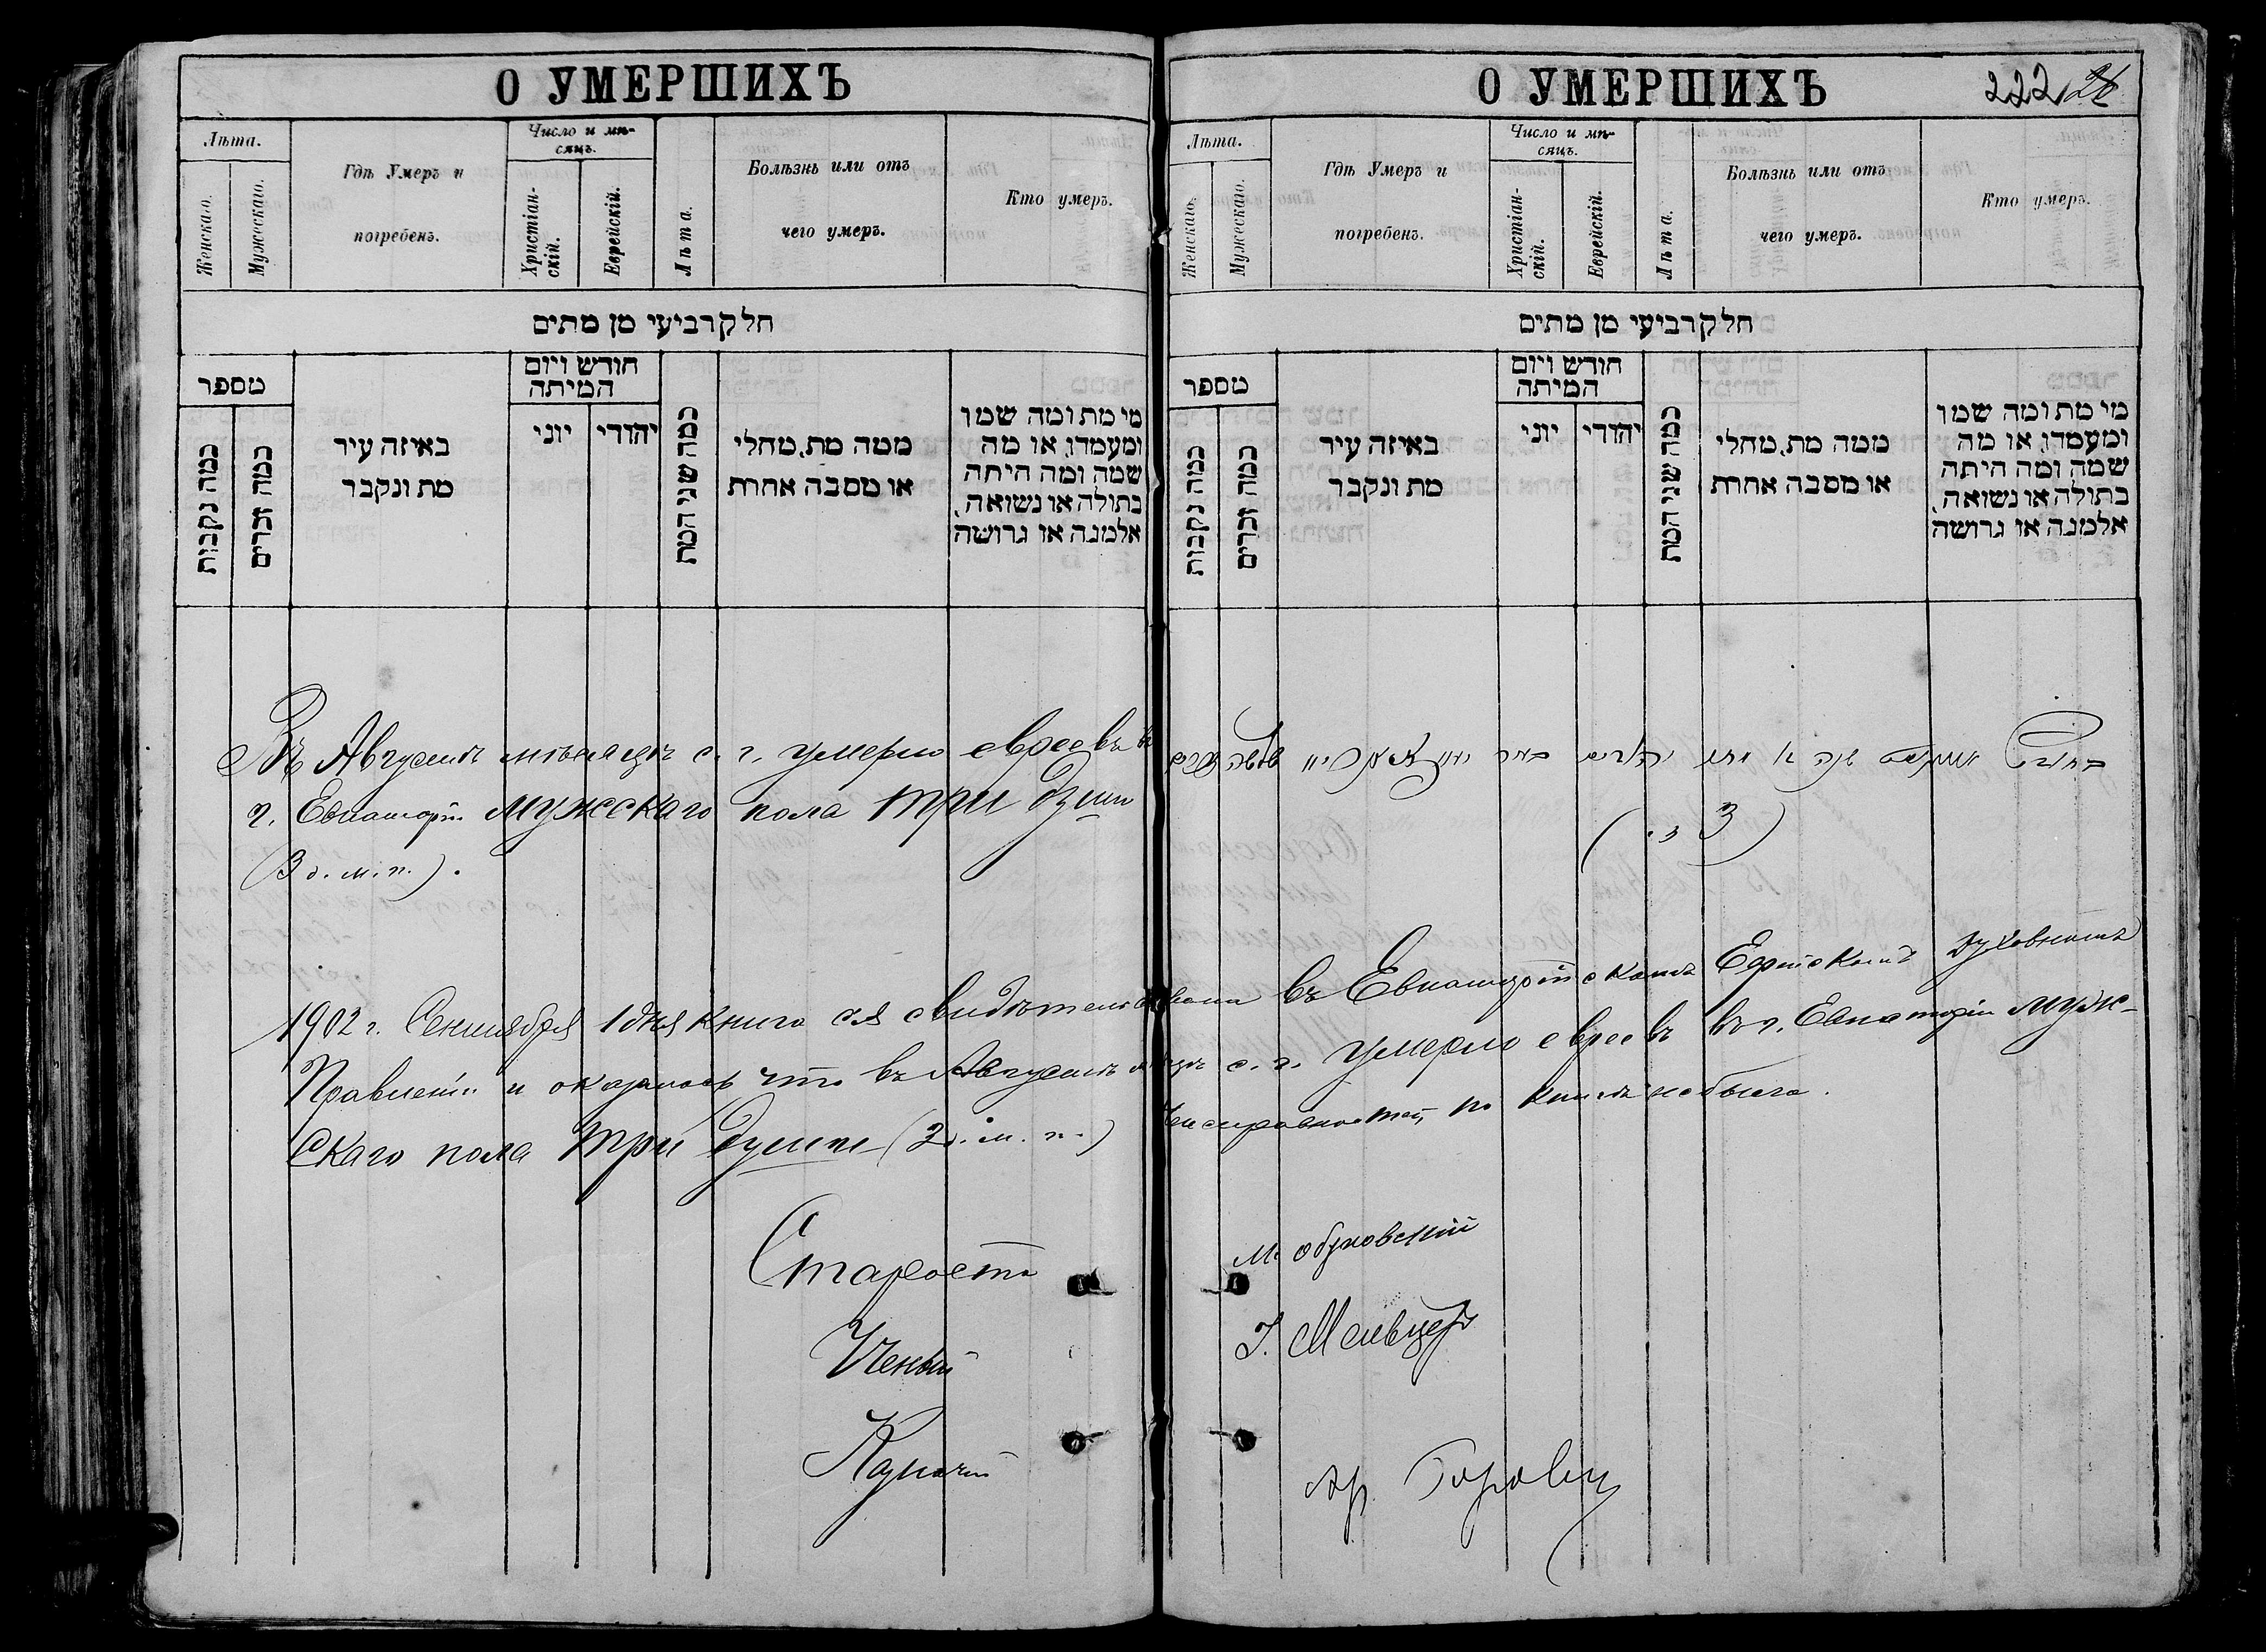 О УМЕРШИХЪ
Лѣта.
Женскаго.
Мужескаго.
Гдѣ Умеръ и
погребенъ.
Число и мѣ-
сяцъ.
Христіан-
скій.
Еврейскій.
Лѣта.
Болѣзнь или отъ
чего умеръ.
Кто умеръ.
חלק רביעי מן מתים
מספר
כמה נקבות
כמה זכרים
באיזה עיר
מת ונקבר
חודש ויום
המיתה
יוני
יהודי
כמה שני המת
ממה מת, מחלי
או מסבה אחרת
מי מת ומה שמו
ומעמדו, או מה
שמה ומה היתה
בתולה או נשואה,
אלמנה או גרושה
Въ Августѣ мѣсяцѣ с. г. умерло евреевъ въ
г. Евпаторіи мужескаго пола три души
(3 д. м. п.).
О УМЕРШИХЪ
222 26
Лѣта.
Женскаго.
Мужескаго.
Гдѣ Умеръ и
погребенъ.
Число и мѣ-
сяцъ.
Христіан-
скій.
Еврейскій.
Лѣта.
Болѣзнь или отъ
чего умеръ.
Кто умеръ.
חלק רביעי מן מתים
מספר
כמה נקבות
כמה זכרים
באיזה עיר
מת ונקבר
חודש ויום
המיתה
יוני
יהודי
כמה שני המת
ממה מת, מחלי
או מסבה אחרת
מי מת ומה שמו
ומעמדו, או מה
שמה ומה היתה
בתולה או נשואה,
אלמנה או גרושה
(3 ז.)
1902 г. Сентября 1 дня книга сія свидѣтельствована въ Евпаторійскомъ Еврейскомъ Духовномъ
Правленіи и оказалось что въ Августѣ м-цѣ с. г. умерло евреевъ въ г. Евпаторіи муже-
скаго пола три души (3 д. м. п.) Неисправностей по книгѣ не было.
Староста М. Обуховскій
Ученый
Казначей